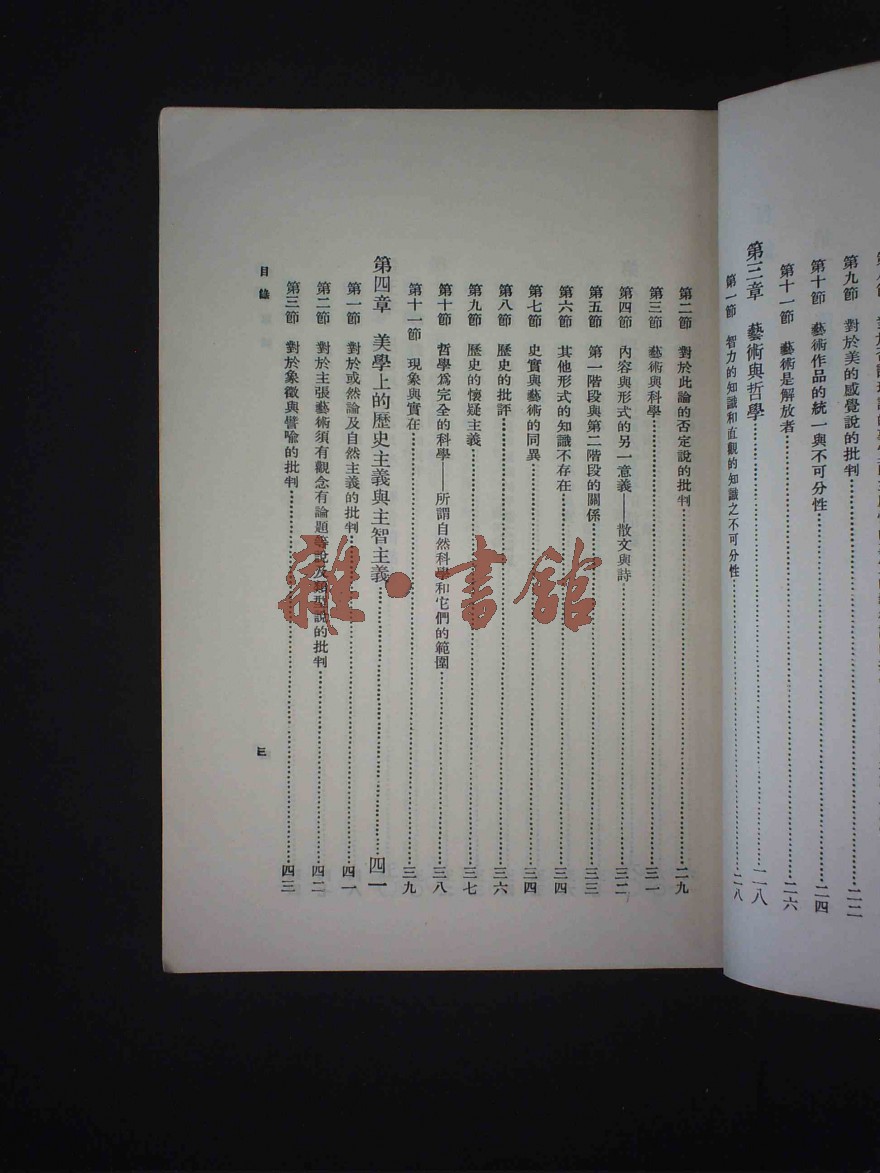 第九節　對於美的感覺說的批判……二二
第十節　藝術作品的統一與不可分性……二四
第十一節　藝術是解放者……二六
第三章　藝術與哲學……二八
第一節　智力的知識和直觀的知識之不可分性……二八
第二節　對於此論的否定說的批判……二九
第三節　藝術與科學……三一
第四節　內容與形式的另一意義——散文與詩……三二
第五節　第一階段與第二階段的關係……三三
第六節　其他形式的知識不存在……三四
第七節　史實與藝術的同異……三四
第八節　歷史的批評……三六
第九節　歷史的懷疑主義……三七
第十節　哲學爲完全的科學——所謂自然科學和它們的範圍……三八
第十一節　現象與實在……三九
第四章　美學上的歷史主義與主智主義……四一
第一節　對於或然論及自然主義的批判……四一
第二節　對於主張藝術須有觀念有論題等說及類型說的批判……四二
第三節　對於象徵與譬喻的批判……四三
目錄
三
雜·書館